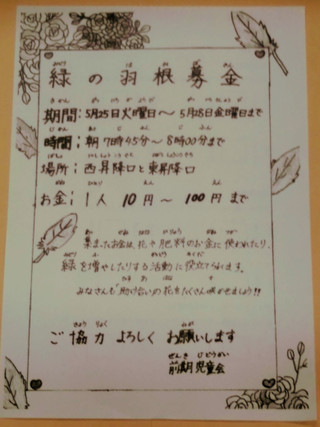 緑の羽根募金
期間：5月25日火曜日〜5月28日金曜日まで
時間：朝7時45分〜8時00分まで
場所：西昇降口と東昇降口
お金：1人 10円〜100円まで
集まったお金は、花や肥料のお金に使われたり、
緑を増やしたりする活動に役立てられます。
みなさんも"助け合いの花をたくさん咲かせましょう!!
ご協力よろしくお願いします
前期児童会